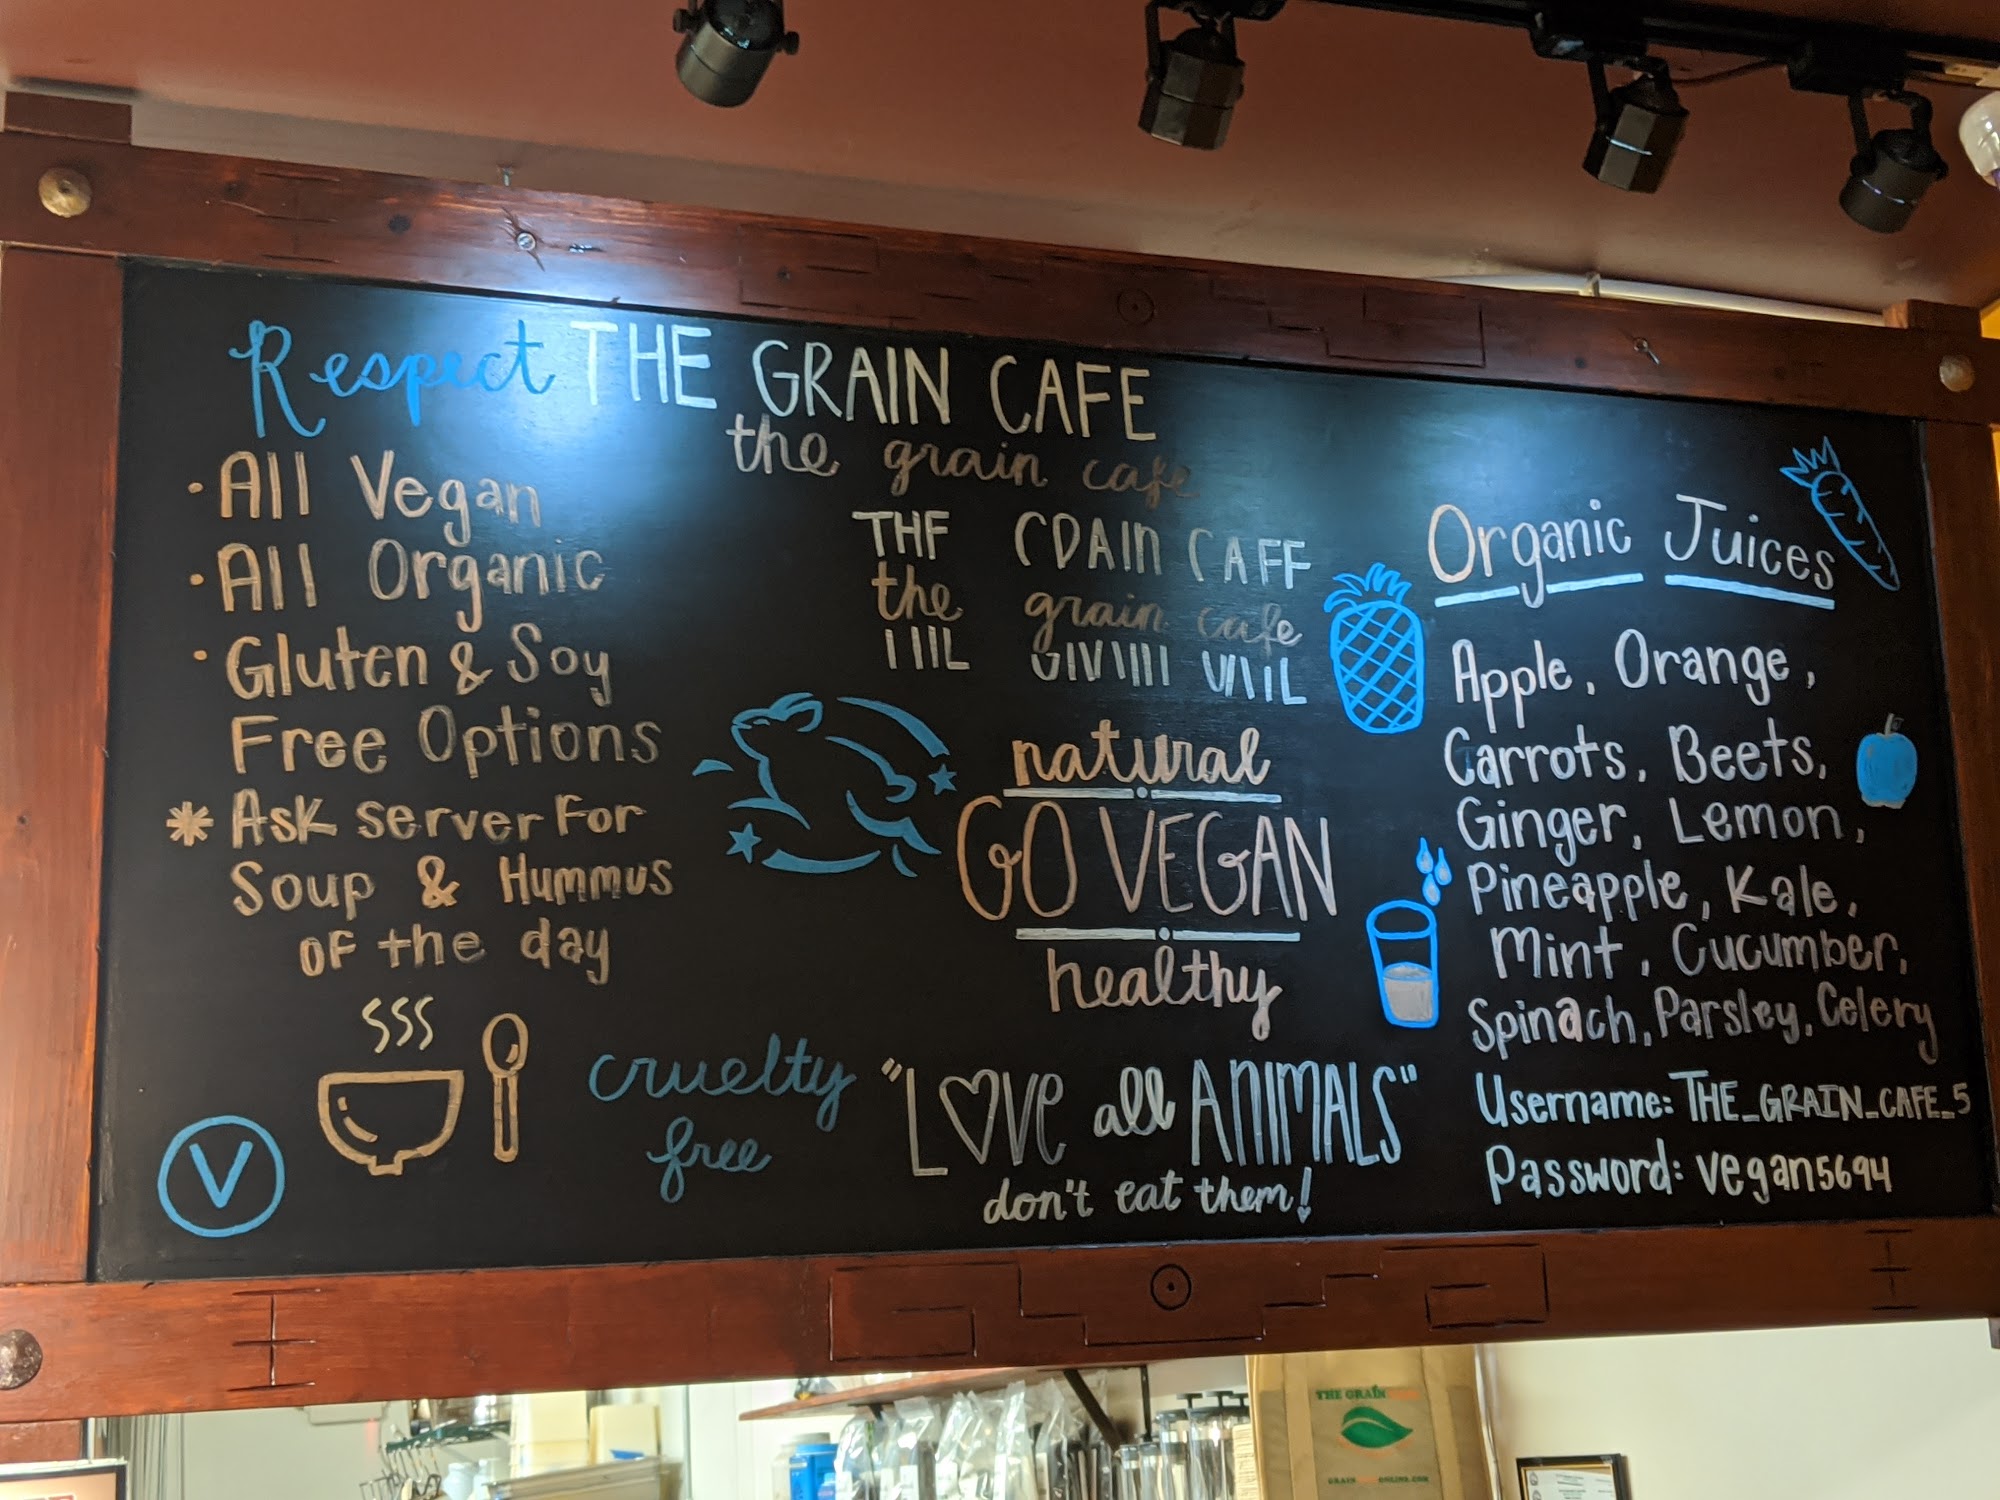 Respect THE GRAIN CAFE
the grain cafe
· All Vegan
· All Organic
· Gluten & Soy
Free Options
* Ask server For
Soup & Hummus
of the day
V
THE GRAIN CAFE
the grain cafe
natural
GO VEGAN
healthy
cruelty
free
"LOVE all ANIMALS"
don't eat them!
Organic Juices
Apple, Orange,
Carrots, Beets,
Ginger, Lemon,
Pineapple, Kale,
Mint, Cucumber,
Spinach, Parsley, Celery
Username: THE_GRAIN_CAFE_5
Password: vegan5694
THE GRAIN